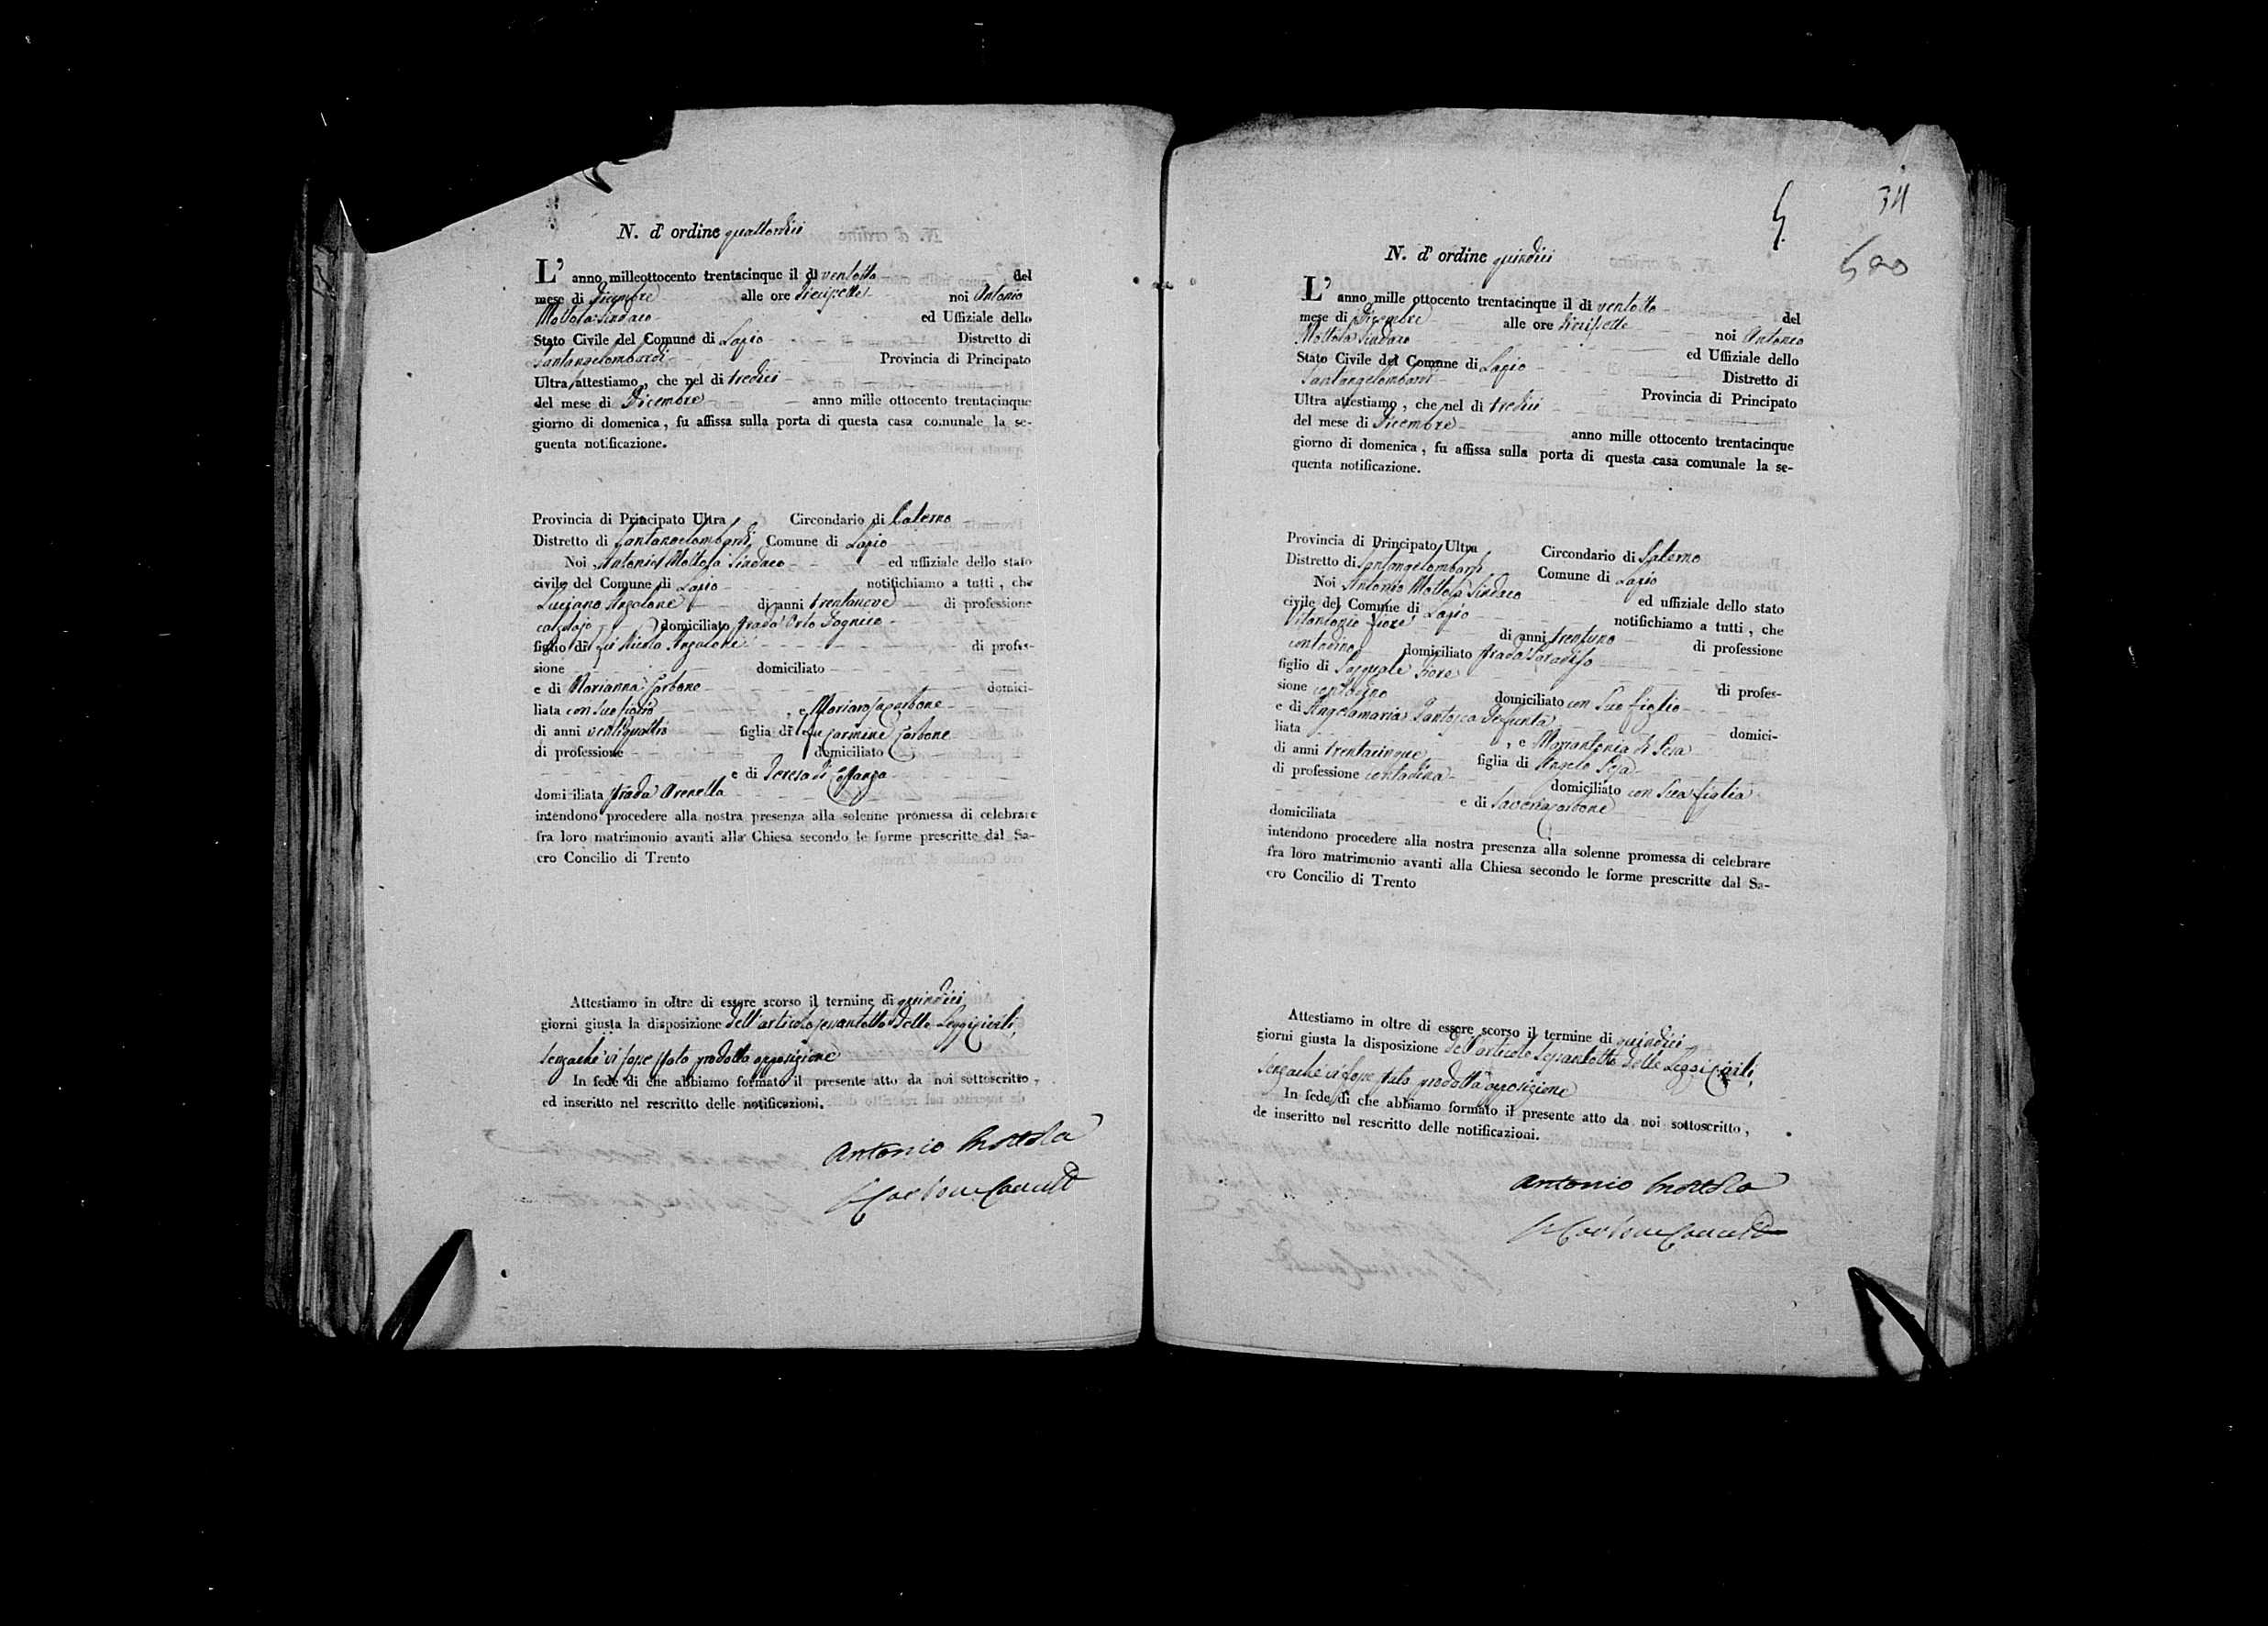 N. d' ordine quattordici
L' anno milleottocento trentacinque il dì ventotto del
mese di Dicembre alle ore diecisette noi Antonio
Mottola Sindaco ed Uffiziale dello
Stato Civile del Comune di Lapio Distretto di
Santangelombardi Provincia di Principato
Ultra attestiamo, che nel dì tredici
del mese di Dicembre anno mille ottocento trentacinque
giorno di domenica, fu affissa sulla porta di questa casa comunale la se-
guenta notificazione.
Provincia di Principato Ultra Circondario di Paterno
Distretto di Santangelombardi Comune di Lapio
Noi Antonio Mottola Sindaco ed uffiziale dello stato
civile del Comune di Lapio notifichiamo a tutti, che
Luciano Anzalone di anni trentanove di professione
calzolajo domiciliato strada Orto
figlio di fu Nicola Anzalone di profes-
sione domiciliato
e di Marianna Carbone domici-
liata con suo figlio , e Mariarosa Carbone
di anni ventiquattro figlia di fu Carmine Carbone
di professione domiciliato
e di Teresa di Costanza
domiciliata strada Arenella
intendono procedere alla nostra presenza alla solenne promessa di celebrare
fra loro matrimonio avanti alla Chiesa secondo le forme prescritte dal Sa-
cro Concilio di Trento
Attestiamo in oltre di essere scorso il termine di quindici
giorni giusta la disposizione dell'articolo sessantotto delle Leggi civili,
senzachè vi fosse stata prodotta opposizione
In fede di che abbiamo formato il presente atto da noi sottoscritto,
ed inseritto nel rescritto delle notificazioni.
Antonio Mottola
34
500
N. d' ordine quindici
L' anno mille ottocento trentacinque il di ventotto del
mese di Dicembre alle ore diecisette noi Antonio
Mottola Sindaco ed Uffiziale dello
Stato Civile del Comune di Lapio Distretto di
Santangelombardi Provincia di Principato
Ultra attestiamo, che nel di tredici
del mese di Dicembre anno mille ottocento trentacinque
giorno di domenica, fu affissa sulla porta di questa casa comunale la se-
quenta notificazione.
Provincia di Principato Ultra Circondario di Paterno
Distretto di Santangelombardi Comune di Lapio
Noi Antonio Mottola Sindaco ed uffiziale dello stato
civile del Comune di Lapio notifichiamo a tutti, che
Vitantonio Fiore di anni trentuno di professione
contadino domiciliato strada Paradiso
figlio di Pasquale Fiore di profes-
sione contadino domiciliato con suo figlio
e di Angelamaria Santosca defunta domici-
liata , e Mariantonia di Sesa
di anni trentacinque figlia di Angelo Sesa
di professione contadina domiciliato con sua figlia
e di Saveria Carbone
domiciliata
intendono procedere alla nostra presenza alla solenne promessa di celebrare
fra loro matrimonio avanti alla Chiesa secondo le forme prescritte dal Sa-
cro Concilio di Trento
Attestiamo in oltre di essere scorso il termine di quindici
giorni giusta la disposizione dell'articolo sessantotto delle Leggi civili,
senzachè vi fosse stata prodotta opposizione
In fede di che abbiamo formato il presente atto da noi sottoscritto,
de inseritto nel rescritto delle notificazioni.
Antonio Mottola